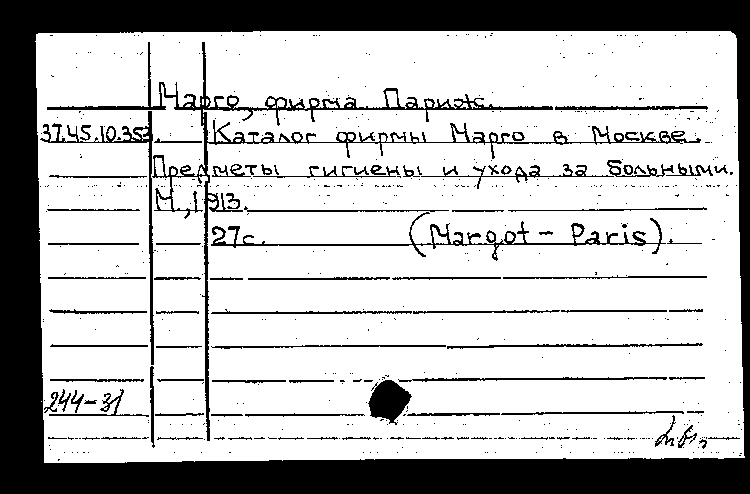 Марго, фирма. Париж.
37.45.10.353. Каталог фирмы Марго в Москве.
Предметы гигиены и ухода за больными.
М., 1913.
27с. (Margot - Paris).
244-31